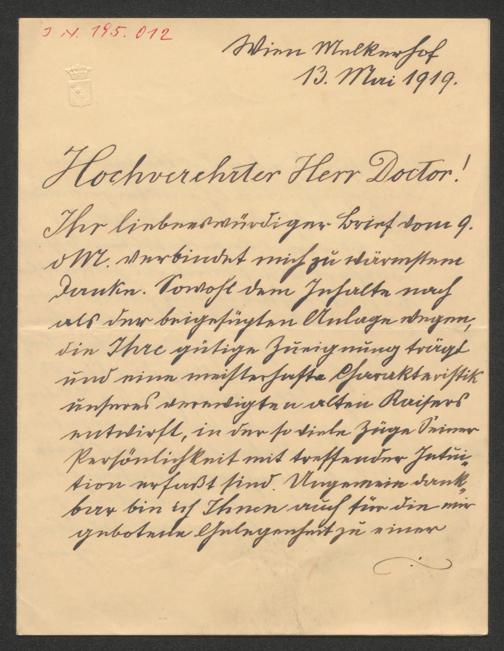 J.N. 195.012
Wien Melkerhof
13. Mai 1919.
Hochverehrter Herr Doctor!
Ihr liebenswürdiger Brief vom 9.
d M. verbindet mich zu wärmstem
Danke. Sowohl dem Inhalte nach
als der beigefügten Anlage wegen,
die Ihre gütige Zueignung trägt
und eine meisterhafte Charakteristik
unseres verewigten alten Kaisers
entwirft, in der so viele Züge Seiner
Persönlichkeit mit treffender Intui-
tion erfaßt sind. Ungemein dank-
bar bin ich Ihnen auch für die mir
gebotene Gelegenheit zu einer